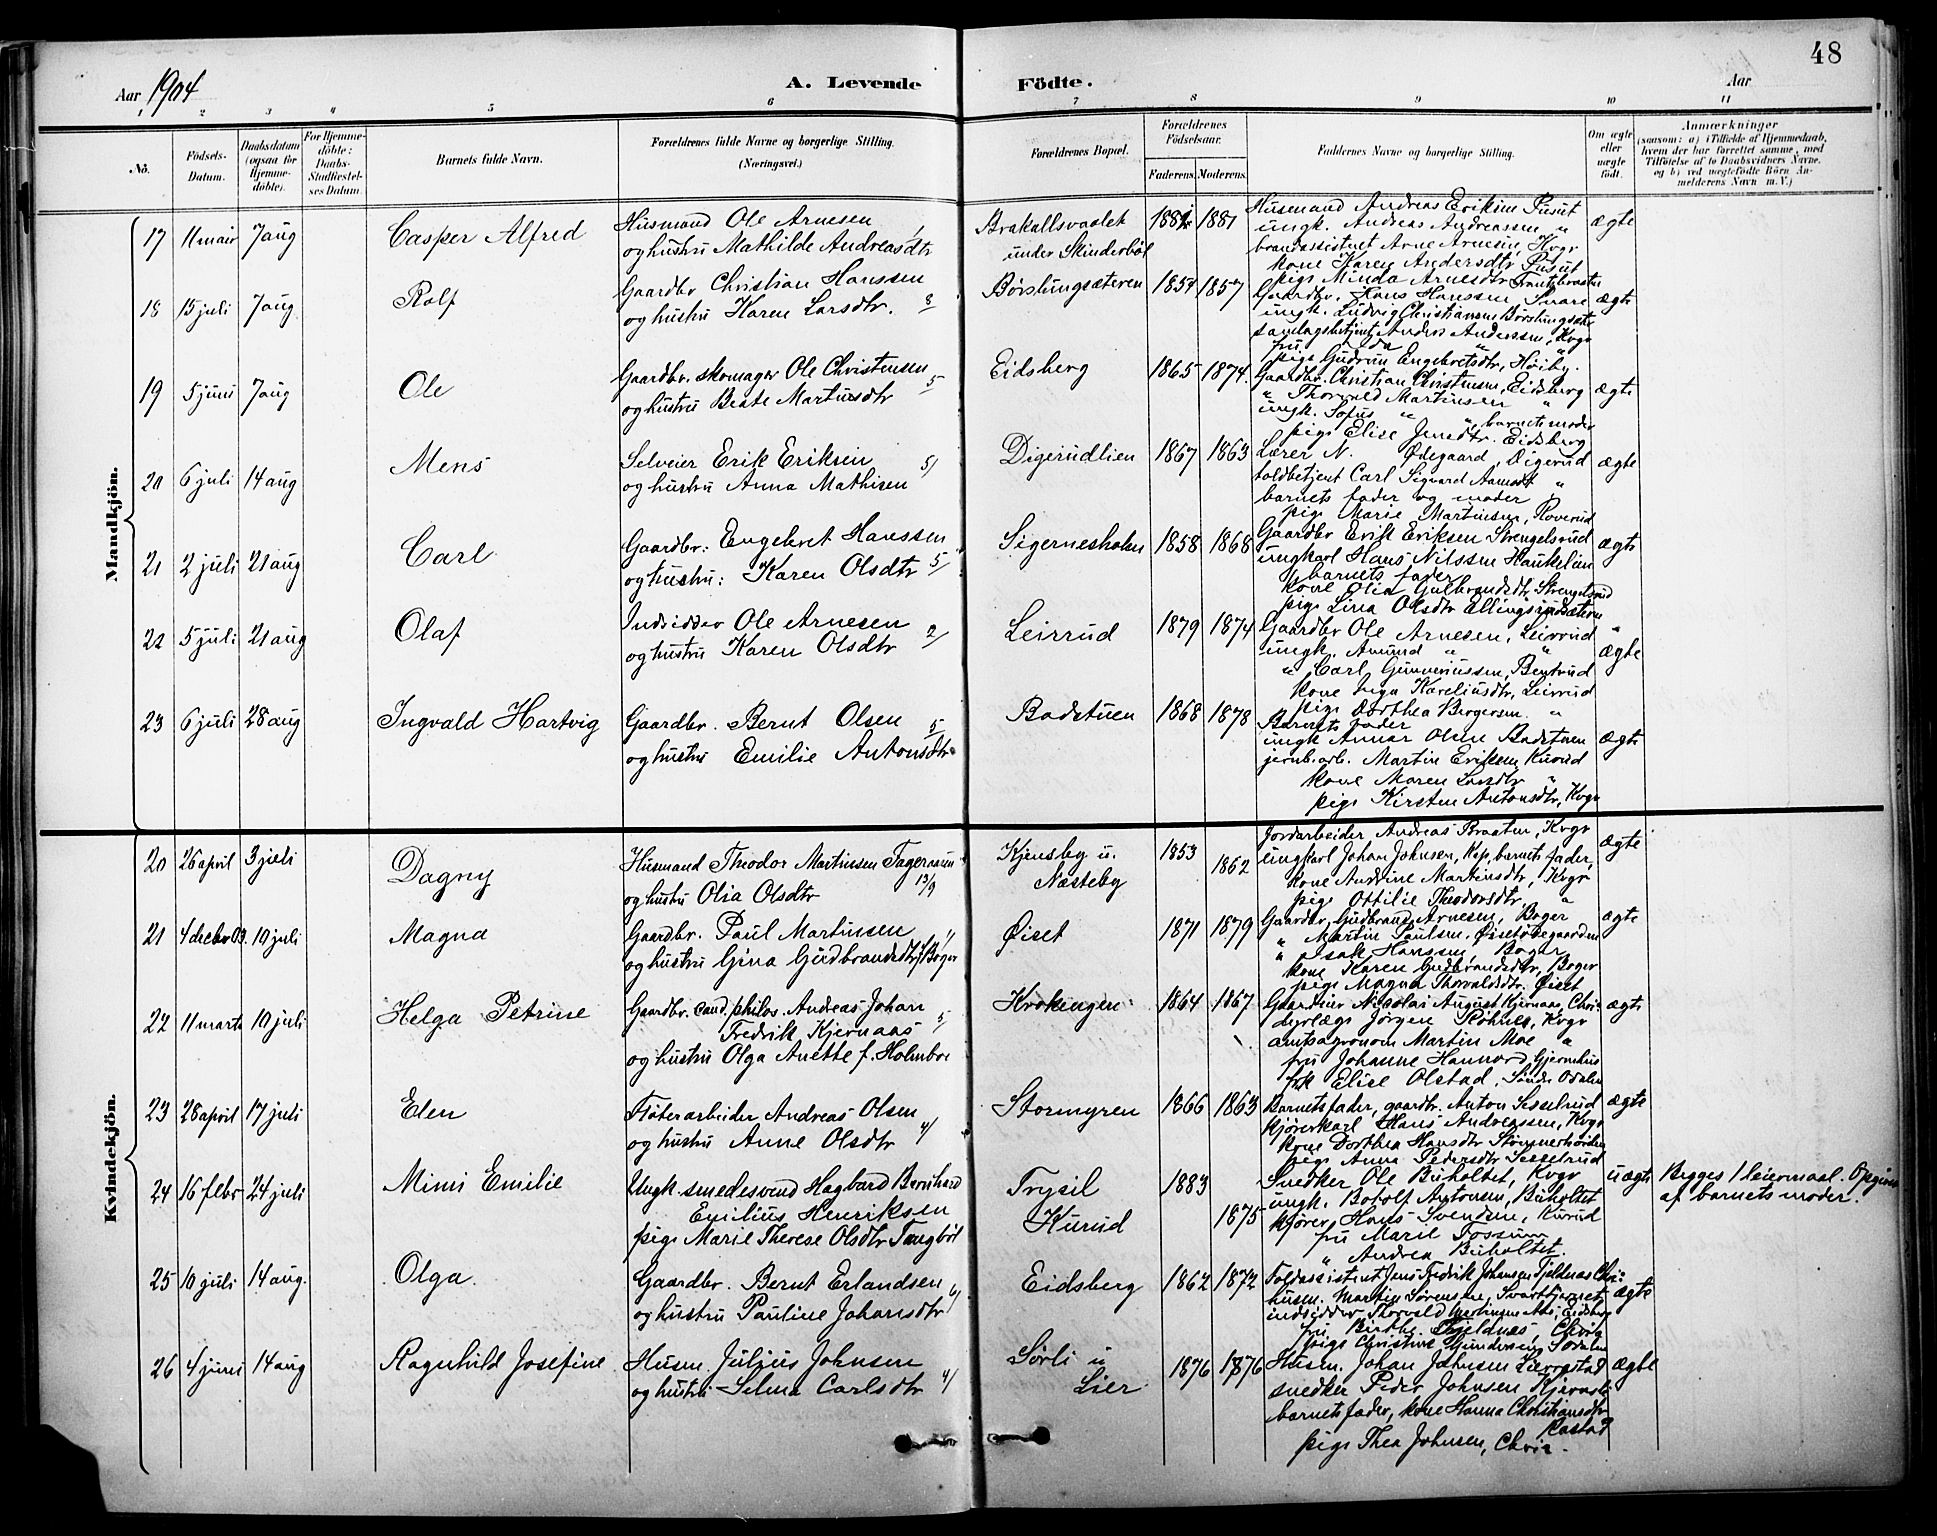 48
Aar 1904 A. Levende Fødte. Aar
1 2 3 4 5 6 7 8 9 10 11
No. Födsels-Datum. Daabsdatum (ogsaa for Hjemmedöbte). For Hjemmedöbte: Daabs-Stadfæstelses Datum. Barnets fulde Navn. Forældrenes fulde Navne og borgerlige Stilling. (Næringsvei.) Forældrenes Bopæl. Forældrenes Födselsaar. Faderens. Moderens. Faddernes Navne og borgerlige Stilling. Om ægte eller uægte födt. Anmærkninger (saasom: a) i Tilfælde af Hjemmedaab, hvem der har forrettet samme, med Tilföielse af to Daabsvidners Navne. og b) ved uægtefödte Börn Anmelderens Navn m. V.)
Mandkjön.
17 11 mai 7 aug Casper Alfred Husmand Ole Arnesen Brakallsvaalet 1881 Husmand Andreas Eriksen Pusut ægte
og hustru Mathilde Andreasdtr under Skinderböl ungk. Andreas Andreassen "
brandassistnet Arne Arnesen, Kvgr
kone Karen Andersdtr Pusut
pige Minda Arnesdtr
18 15 juli 7 aug Rolf Gaardbr Christian Hanssen Børslungsæteren 1857 Gaardbr. Hans Hanssen, Snare ægte
og hustru Karen Larsdtr. ungk. Ludvig Christiansen Børslungsæt
samlagsbetjent Anders Anderssen, Kvgr
fru Ida " "
pige Gudrun Engebretsdtr, Høiby.
19 5 juni 7 aug Ole Gaardbr. skomager Ole Christensen 5 Eidsberg 1865 1874. Gaardbr. Christian Christensen, Eidsberg ægte
og hustru Beate Martinsdtr " Thorvald Martinsen "
ungk. Sofus " ", barnets moder
pige Elise Jensdtr. Eidsberg
20 6 juli 14 aug Mens Selveier Erik Eriksen 5/ Digerudlien 1867 1863 Lærer N. Ødegaard, Digerud ægte
og hustru Anna Mathisen toldbetjent Carl Sigvard Aamodt "
barnets fader og moder
pige Marie Martinsen, Roverud
21 2 juli 21 aug Carl Gaardbr: Engebret Hanssen Sigernesholm 1858 1868 Gaardbr Erik Eriksen Strengelsrud ægte
og hustru: Karen Olsdtr 5/ ungkarl Hans Nilssen Haukelien
barnets fader
kone Olia Gulbrandsdtr, Strengelsrud
pige Lina Olsdtr Ellingsrudsæteren
22 5 juli 21 aug Olaf Indsidder Ole Arnesen Leirrud 1879 1874 Gaardbr Ole Arnesen, Leirrud "
og hustru Karen Olsdtr 2/ ungk. Amund " " ægte
" Carl Gunneriussen, Bentrud
kone Inga Kareliusdtr, Leirrud
pige Dorthea Bergersen. "
23 6 juli 28 aug Ingvald Hartvig Gaardbr. Bernt Olsen 5 Badstuen 1868 1878 Barnets fader
og hustru Emilie Antonsdtr ungk Annar Olsen Badstuen ægte
jernb.arb. Martin Eriksen Kurud
kone Maren Larsdtr "
pige Kirsten Antonsdtr, Kvgr
Kvindekjön.
20 26 april 3 juli Dagny Husmand Theodor Martinsen Kjensby u. 1853 Jordarbeider Andreas Braaten, Kvgr ægte
og hustru Olia Olsdtr 13/9 Næsteby 1862 ungkarl Johan Johnsen, Kvgr, barnets fader,
kone Andrine Martinsdtr, Kvgr
pige Ottilie Theodorsdtr, "
21 4 decbr 03. 10 juli Magna Gaardbr. Paul Martinsen Øiset 1871 1879 Gaardbr. Gudbrand Arnesen, Boger ægte
og hustru Gina Gudbrandsdtr, Boger " Martin Paulsen. Øisetødegaarden
" Isak Hanssen, Boger
kone Karen Gudbrandsdtr, Boger
pige Magna Thorvaldsdtr. Øiset
22 11 marts 10 juli Helga Petrine Gaardbr. cand. philos. Andreas Johan Krokengen 1864 1867 Gaardeier Nicolai August Kjernaas, Chri ægte
Fredrik Kjernaas 5 dyrlæge Jørgen Røhnes, Kvgr
og hustru Olga Anette f. Holmboe amtsagronom Martin Moe "
fru Johanne Hannord, Gjernshus
frk Elise Olstad, Søndre Odalen
23 28 april 17 juli Elen Fløterarbeider Andreas Olsen Stormyren 1866 1863 Barnets fader, gaardbr. Anton Sesselrud ægte
og hustru Anne Olsdtr 4/ kjørerkarl Hans Andreassen, Kvgr
kone Dorthea Hansdtr
pige Anna Pedersdtr Sesselrud
24 16 febr 24 juli Mimi Emilie Ungk. smedesvend Hagbard Bernhard Trysil 1883 Snedker Ole Buholtet, Kvgr uægte Begges 1 leiermaal. Opgiven
Emilius Henriksen ungk. Botolf Antonsen, Buholtet af barnets moder.
pige Marie Therese Olsdtr Tangböl Kurud 1875 kjører Hans Svendsen, Kurud
fru Marie Fossum
" Andrea Buholtet.
25 10 juli 14 aug. Olga. Gaardbr. Bernt Erlandsen Eidsberg 1862 1872 Toldassistent Jens Fredrik Johansen Fjeldnæs Chri: ægte
og hustru Pauline Johansdtr husm. Martin Sørensen, Svarttjernet
indsidder Thorvald Martinsen Eidsberg
fru Birthe Fjeldnæs, Chria
26 4 juni 14 aug Ragnhild Josefine Husm. Julius Johnsen Sørli u 1876 1876 Husm. Johan Johnsen ægte
og hustru Selma Carlsdtr 4/ Lier snedker Peder Johnsen
barnets fader, kone Hanna Christiansdtr
Rastad
pige Thea Johnsen, Chria.